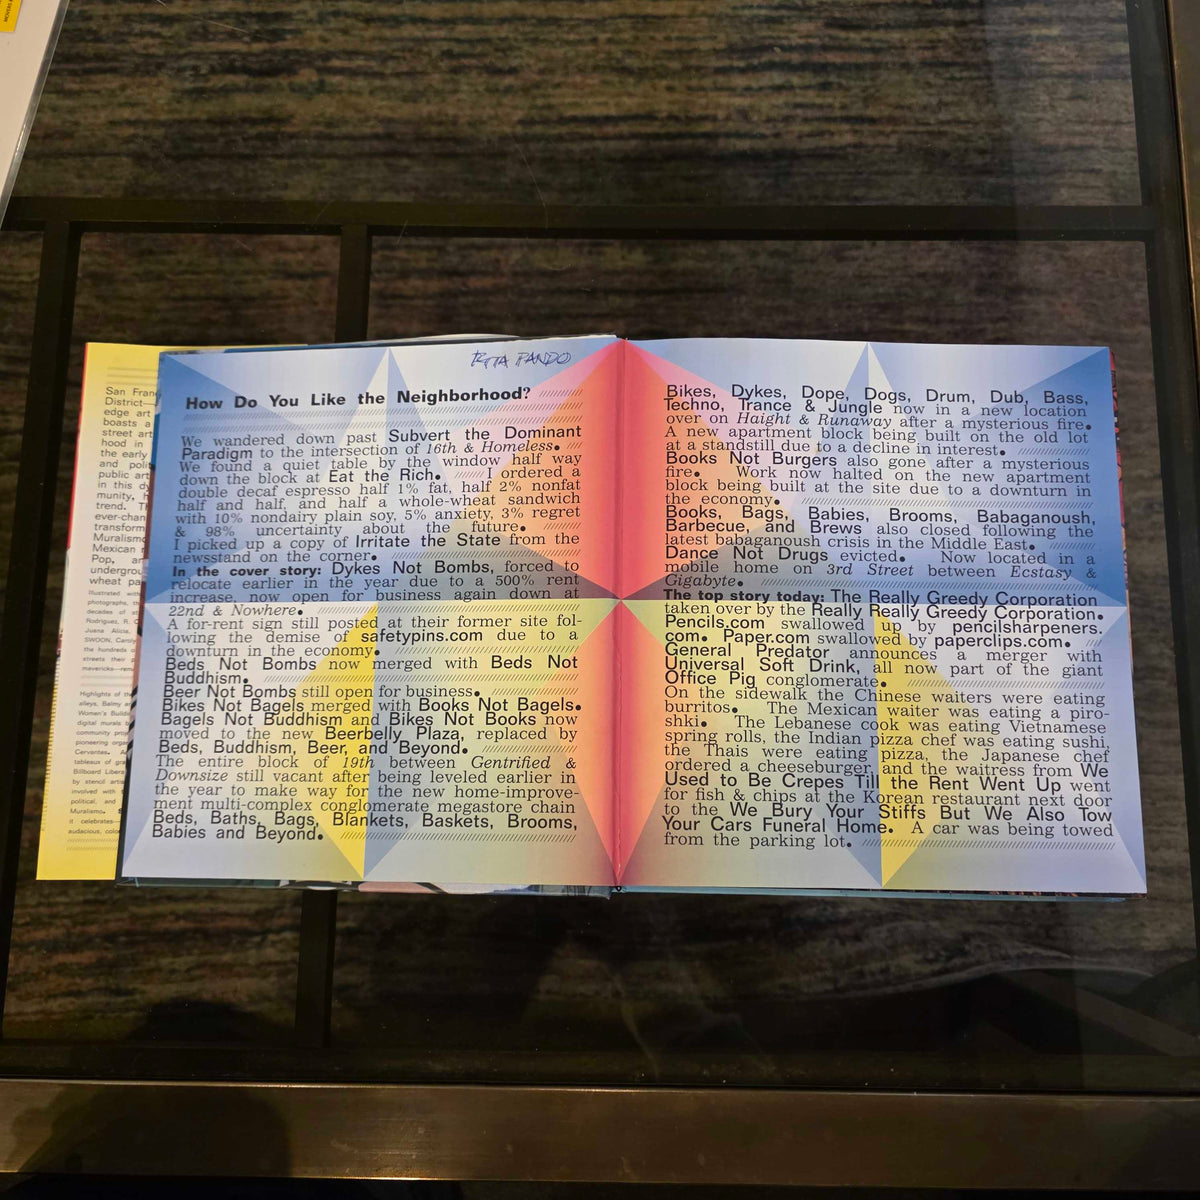 MOVERS
San Fran
District—
edge art
boasts a
street art
hood in
the early
and polit
public art
in this dy
munity.
trend. Th
ever-chan
transform
Muralism
Mexican m
Pop, an
undergrou
wheat pa
Illustrated with
photographs, th
decades of st
Rodriguez, R. C
Juana Alicia,
SWOON, Caroly
the hundreds o
streets their p
mavericks—rem
Highlights of the
alleys, Balmy an
Women's Buildi
digital murals b
community proj
pioneering orga
Cervantes. A
tableaux of gra
Billboard Libera
by stencil artis
involved with t
political, and
Muralismo. B
it celebrates—
audacious, colo
RITA FANDO
How Do You Like the Neighborhood?
We wandered down past Subvert the Dominant
Paradigm to the intersection of 16th & Homeless.
We found a quiet table by the window half way
down the block at Eat the Rich. I ordered a
double decaf espresso half 1% fat, half 2% nonfat
half and half, and half a whole-wheat sandwich
with 10% nondairy plain soy, 5% anxiety, 3% regret
& 98% uncertainty about the future.
I picked up a copy of Irritate the State from the
newsstand on the corner.
In the cover story: Dykes Not Bombs, forced to
relocate earlier in the year due to a 500% rent
increase, now open for business again down at
22nd & Nowhere.
A for-rent sign still posted at their former site fol-
lowing the demise of safetypins.com due to a
downturn in the economy.
Beds Not Bombs now merged with Beds Not
Buddhism.
Beer Not Bombs still open for business.
Bikes Not Bagels merged with Books Not Bagels.
Bagels Not Buddhism and Bikes Not Books now
moved to the new Beerbelly Plaza, replaced by
Beds, Buddhism, Beer, and Beyond.
The entire block of 19th between Gentrified &
Downsize still vacant after being leveled earlier in
the year to make way for the new home-improve-
ment multi-complex conglomerate megastore chain
Beds, Baths, Bags, Blankets, Baskets, Brooms,
Babies and Beyond.
Bikes, Dykes, Dope, Dogs, Drum, Dub, Bass,
Techno, Trance & Jungle now in a new location
over on Haight & Runaway after a mysterious fire.
A new apartment block being built on the old lot
at a standstill due to a decline in interest.
Books Not Burgers also gone after a mysterious
fire. Work now halted on the new apartment
block being built at the site due to a downturn in
the economy.
Books, Bags, Babies, Brooms, Babaganoush,
Barbecue, and Brews also closed following the
latest babaganoush crisis in the Middle East.
Dance Not Drugs evicted. Now located in a
mobile home on 3rd Street between Ecstasy &
Gigabyte.
The top story today: The Really Greedy Corporation
taken over by the Really Really Greedy Corporation.
Pencils.com swallowed up by pencilsharpeners.
com. Paper.com swallowed by paperclips.com.
General Predator announces a merger with
Universal Soft Drink, all now part of the giant
Office Pig conglomerate.
On the sidewalk the Chinese waiters were eating
burritos. The Mexican waiter was eating a piro-
shki. The Lebanese cook was eating Vietnamese
spring rolls, the Indian pizza chef was eating sushi,
the Thais were eating pizza, the Japanese chef
ordered a cheeseburger and the waitress from We
Used to Be Crepes Till the Rent Went Up went
for fish & chips at the Korean restaurant next door
to the We Bury Your Stiffs But We Also Tow
Your Cars Funeral Home. A car was being towed
from the parking lot.